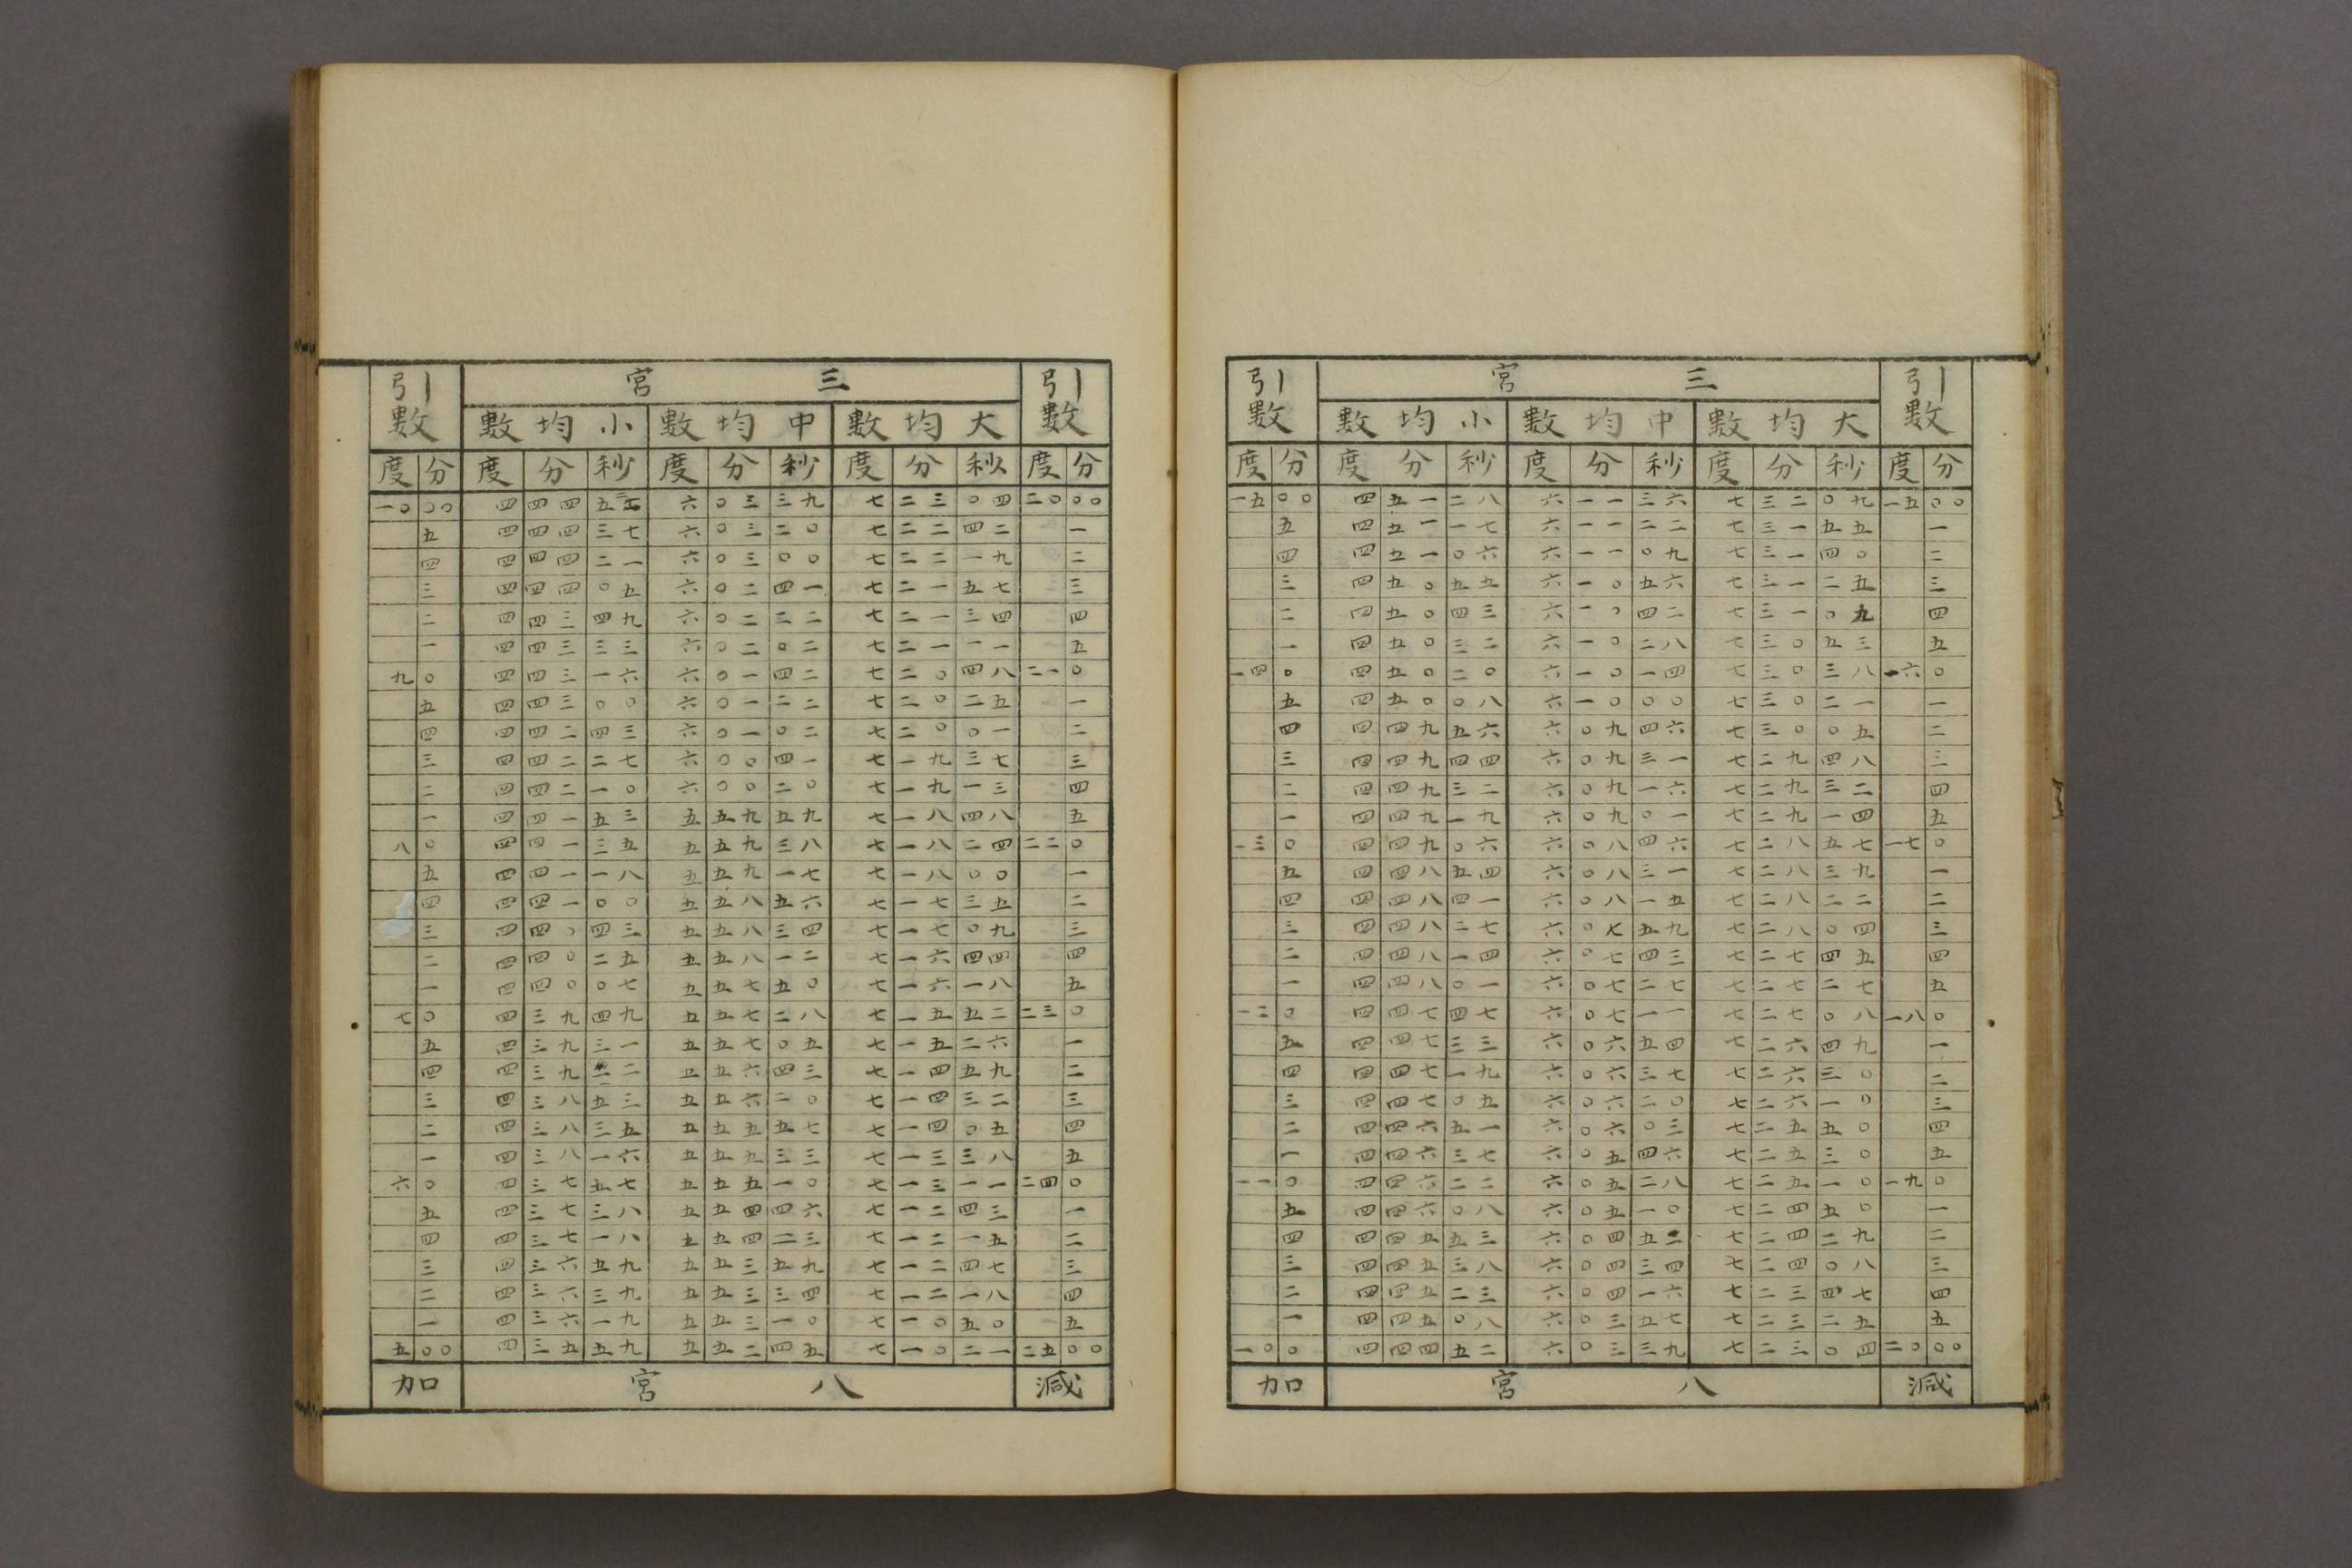 引數 三宮 引數
大均數 中均數 小均數
度 分 度 分 秒 度 分 秒 度 分 秒 度 分
一五 〇〇 四 五一 二八 六 一一 三六 七 三二 〇九 一五 〇〇
五 四 五一 一七 六 一一 二二 七 三一 五五 一
四 四 五一 〇六 六 一一 〇九 七 三一 四〇 二
三 四 五〇 五五 六 一〇 五六 七 三一 二五 三
二 四 五〇 四三 六 一〇 四二 七 三一 〇九 四
一 四 五〇 三二 六 一〇 二八 七 三〇 五三 五
一四 〇 四 五〇 二〇 六 一〇 一四 七 三〇 三八 一六 〇
五 四 五〇 〇八 六 一〇 〇〇 七 三〇 二一 一
四 四 四九 五六 六 〇九 四六 七 三〇 〇五 二
三 四 四九 四四 六 〇九 三一 七 二九 四八 三
二 四 四九 三二 六 〇九 一六 七 二九 三二 四
一 四 四九 一九 六 〇九 〇一 七 二九 一四 五
一三 〇 四 四九 〇六 六 〇八 四六 七 二八 五七 一七 〇
五 四 四八 五四 六 〇八 三一 七 二八 三九 一
四 四 四八 四一 六 〇八 一五 七 二八 二二 二
三 四 四八 二七 六 〇七 五九 七 二八 〇四 三
二 四 四八 一四 六 〇七 四三 七 二七 四五 四
一 四 四八 〇一 六 〇七 二七 七 二七 二七 五
一二 〇 四 四七 四七 六 〇七 一一 七 二七 〇八 一八 〇
五 四 四七 三三 六 〇六 五四 七 二六 四九 一
四 四 四七 一九 六 〇六 三七 七 二六 三〇 二
三 四 四七 〇五 六 〇六 二〇 七 二六 一〇 三
二 四 四六 五一 六 〇六 〇三 七 二五 五〇 四
一 四 四六 三七 六 〇五 四六 七 二五 三〇 五
一一 〇 四 四六 二二 六 〇五 二八 七 二五 一〇 一九 〇
五 四 四六 〇八 六 〇五 一〇 七 二四 五〇 一
四 四 四五 五三 六 〇四 五二 七 二四 二九 二
三 四 四五 三八 六 〇四 三四 七 二四 〇八 三
二 四 四五 二三 六 〇四 一六 七 二三 四七 四
一 四 四五 〇八 六 〇三 五七 七 二三 二五 五
一〇 〇 四 四四 五二 六 〇三 三九 七 二三 〇四 二〇 〇〇
加 八宮 減
引數 三宮 引數
大均數 中均數 小均數
度 分 度 分 秒 度 分 秒 度 分 秒 度 分
一〇 〇〇 四 四四 五 六 〇三 三九 七 二三 〇四 二〇 〇〇
五 四 四四 三七 六 〇三 二〇 七 二二 四二 一
四 四 四四 二一 六 〇三 〇〇 七 二二 一九 二
三 四 四四 〇五 六 〇二 四一 七 二一 五七 三
二 四 四三 四九 六 〇二 二二 七 二一 三四 四
一 四 四三 三三 六 〇二 〇二 七 二一 一一 五
九 〇 四 四三 一六 六 〇一 四二 七 二〇 四八 二一 〇
五 四 四三 〇〇 六 〇一 二二 七 二〇 二五 一
四 四 四二 四三 六 〇一 〇二 七 二〇 〇一 二
三 四 四二 二七 六 〇〇 四一 七 一九 三七 三
二 四 四二 一〇 六 〇〇 二〇 七 一九 一三 四
一 四 四一 五三 五 五九 五九 七 一八 四八 五
八 〇 四 四一 三五 五 五九 三八 七 一八 二四 二二 〇
五 四 四一 一八 五 五九 一七 七 一八 〇〇 一
四 四 四一 〇〇 五 五八 五六 七 一七 三五 二
三 四 四〇 四三 五 五八 三四 七 一七 〇九 三
二 四 四〇 二五 五 五八 一二 七 一六 四四 四
一 四 四〇 〇七 五 五七 五〇 七 一六 一八 五
七 〇 四 三九 四九 五 五七 二八 七 一五 五二 二三 〇
五 四 三九 三一 五 五七 〇五 七 一五 二六 一
四 四 三九 二 五 五六 四三 七 一四 五九 二
三 四 三八 五三 五 五六 二〇 七 一四 三二 三
二 四 三八 三五 五 五五 五七 七 一四 〇五 四
一 四 三八 一六 五 五五 三三 七 一三 三八 五
六 〇 四 三七 五七 五 五五 一〇 七 一三 一一 二四 〇
五 四 三七 三八 五 五四 四六 七 一二 四三 一
四 四 三七 一八 五 五四 二三 七 一二 一五 二
三 四 三六 五九 五 五三 五九 七 一二 四七 三
二 四 三六 三九 五 五三 三四 七 一二 一八 四
一 四 三六 一九 五 五三 一〇 七 一〇 五〇 五
五 〇〇 四 三五 五九 五 五二 四五 七 一〇 二一 二五 〇〇
加 八宮 減